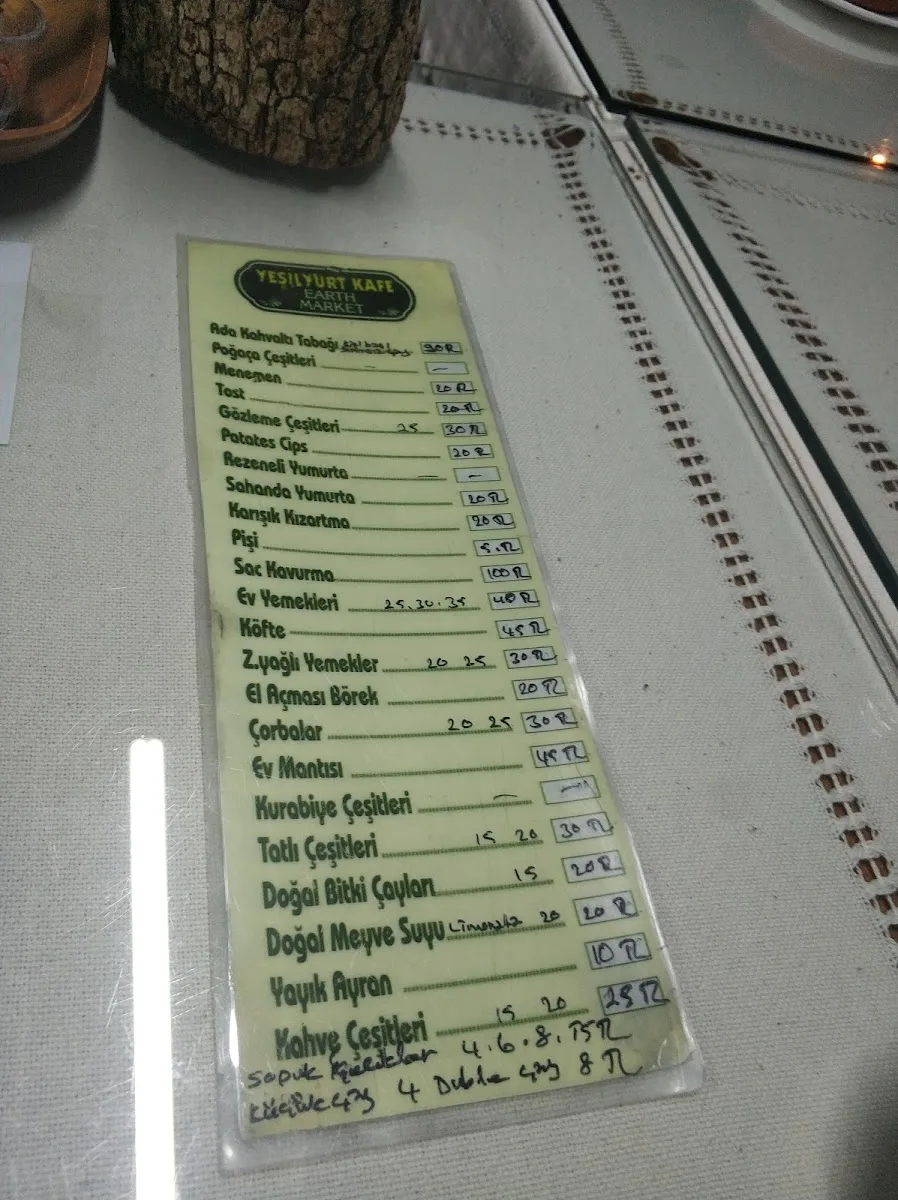 YEŞİLYURT KAFE
EARTH
MARKET
Ada Kahvaltı Tabağı 90 TL
Poğaça Çeşitleri — —
Menemen 20 TL
Tost 20 TL
Gözleme Çeşitleri 25 30 TL
Patates Cips 20 TL
Rezeneli Yumurta — —
Sahanda Yumurta 20 TL
Karışık Kızartma 20 TL
Pişi 5.TL
Sac Kavurma 100 TL
Ev Yemekleri 25.30.35 40 TL
Köfte 45 TL
Z.yağlı Yemekler 20 25 30 TL
El Açması Börek 20 TL
Çorbalar 20 25 30 TL
Ev Mantısı 45 TL
Kurabiye Çeşitleri — —
Tatlı Çeşitleri 15 20 30 TL
Doğal Bitki Çayları 15 20 TL
Doğal Meyve Suyu Limonata 20 20 TL
Yayık Ayran 10 TL
Kahve Çeşitleri 15 20 25 TL
Soğuk 4.6.8.15 TL
Küçük çay 4 Duble çay 8 TL